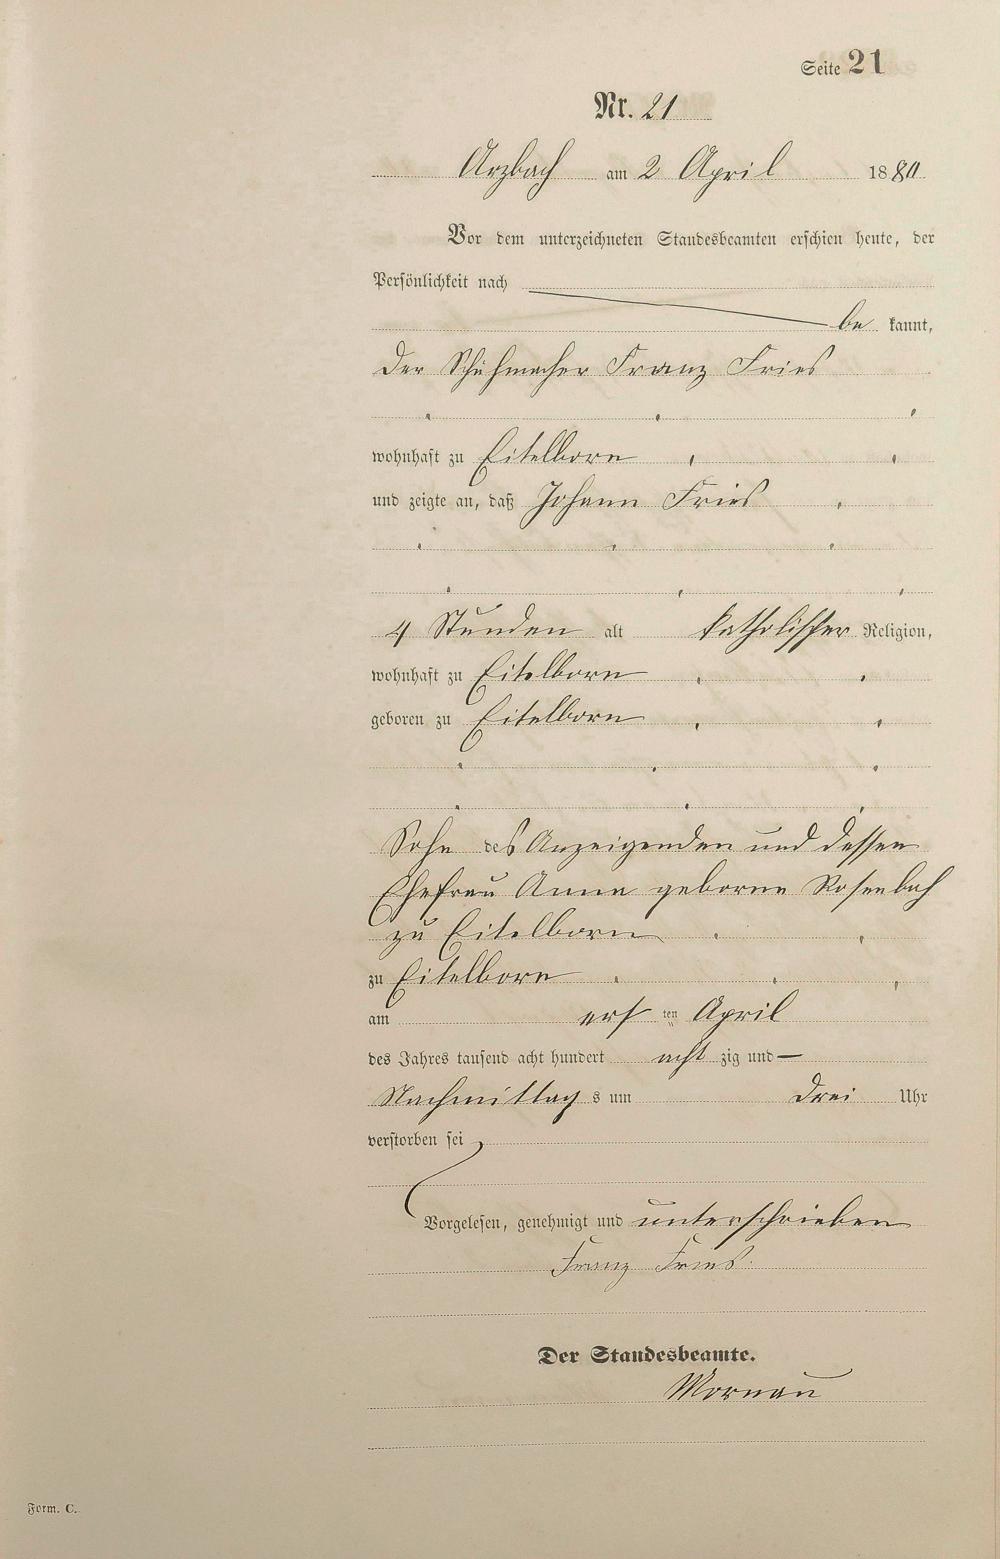 Seite 21
Nr. 21
Arzbach am 2 April 1880
Vor dem unterzeichneten Standesbeamten erschien heute, der
Persönlichkeit nach
be kannt,
der Schuhmacher Franz Fries
wohnhaft zu Eitelborn
und zeigte an, daß Johann Fries
4 Stunden alt katholischer Religion,
wohnhaft zu Eitelborn
geboren zu Eitelborn
Sohn des Anzeigenden und dessen
Ehefrau Anna geborne Rosenbach
zu Eitelborn
zu Eitelborn
am ersten April
des Jahres tausend acht hundert acht zig und —
Nachmittag s um drei Uhr
verstorben sei
Vorgelesen, genehmigt und unterschrieben
Franz Fries.
Der Standesbeamte.
Mornau
Form. C.